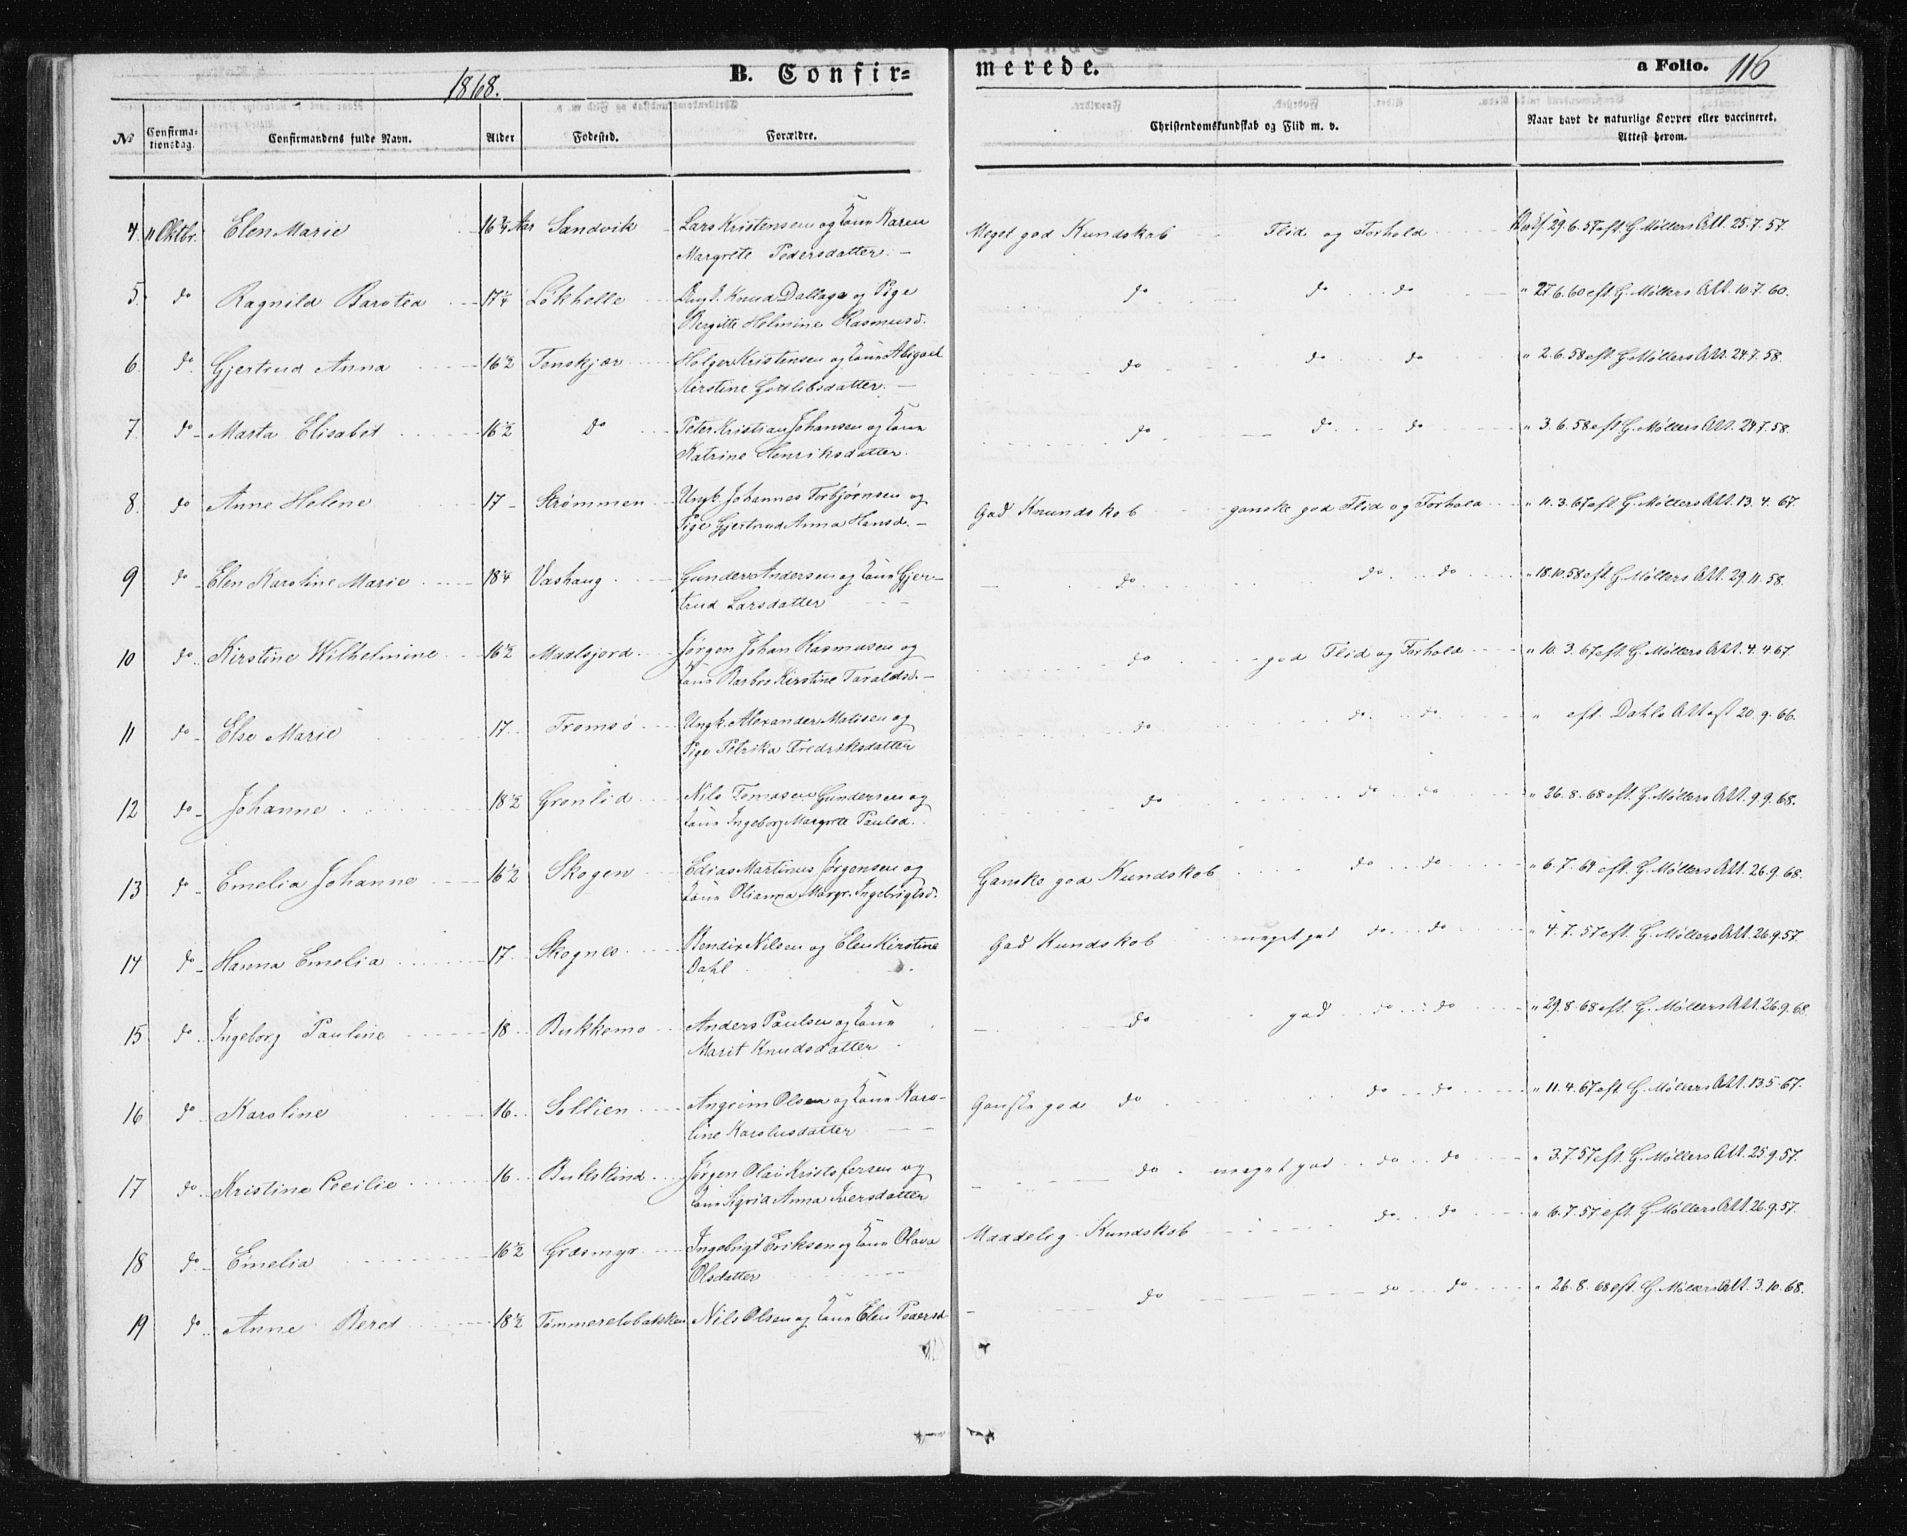 1868.
B. Confir=
merede.
a Folio. 116
№ Confirma-tionsdag. Confirmandens fulde Navn. Alder Fødested. Forældre. Christendomskundskab og Flid m. v. Naar havt de naturlige Kopper eller vaccineret. Attest herom.
4. 11 Oktbr. Elen Marie 16¾ Aar Sandvik Lars Kristensen og Kone Karen Meget god Kundskab Flid og Forhold 29.6.57 eft. G. Møllers Att. 25.7.57.
Margrete Pedersdatter.
5. do Ragnild Barotea 17¼ Løkhelle Ungk. Knud Dallager og Pige do do do " 27.6.60 eft G. Møllers Att. 10.7.60.
Bergitte Helmine Rasmusd.
6. do Gjertrud Anna 16½ Tenskjær Holger Kristensen og Kone Abigael do do do " 2.6.58 eft G. Møllers Att. 24.7.58.
Kirstine Gotlibsdatter.
7. do Marta Elisabet 16½ do Peter Kristian Johansen og Kone do do do " 3.6.58 eft G. Møllers Att. 24.7.58.
Katrine Henriksdatter.
8. do Anne Helene 17 Strømmen Ungk. Johannes Torbjørnsen og God Knundskab ganske god Flid og Forhold " 11.3.67 eft G. Møllers Att. 13.4.67.
Pige Gjertrud Anna Hansd.
9 do Elen Karoline Marie 18¼ Vashaug Gunder Andersen og Kone Gjer- do do do " 18.10.58 eft. G. Møllers Att. 29.11.58.
trud Larsdatter
10 do Kirstine Wilhelmine 16½ Maalsjord Jørgen Johan Rasmusen og do god Flid og Forhold " 10.3.67 eft. G. Møllers Att. 4.4.67.
Kone Barbro Kirstine Taraldsd.
11 do Else Marie 17. Tromsø Ungk. Alexander Matisen og do do do " eft. Dahls Attest 20.9.66.
Pige Petrika Fredriksdatter
12 do Johanne 18½ Grønlid Nils Tomasen Gundersen og do do do " 26.8.68 eft. G. Møllers Att. 9.9.68.
Kone Ingeborg Margrete Paulsd.
13 do Emelia Johanne 16½ Skogen Edias Martinus Jørgensen og Ganske god Kundskab do do " 6.7.64 eft. G. Møllers Att. 26.9.68.
Kone Olianna Margr. Ingebrigtsd.
14 do Hanna Emelia 17 Skognes Bendix Nilsen og Elen Kirstine God Kundskab meget god do do " 4.7.57 eft. G. Møllers Att. 26.9.57.
Dahl
15 do Ingeborg Pauline 18 Bukkemo Anders Paulsen og Kone do god do do " 29.8.68 eft. G. Møllers Att. 26.9.68.
Marit Knudsdatter
16 do Karoline 16. Sollien Angrim Olsen og Kone Karo- Ganske god do do do " 11.4.67 eft G. Møllers Att. 13.5.67.
line Karolusdatter
17 do Kristine Cecilie 16. Bukskind Jørgen Olai Kristofersen og do meget god do do " 3.7.57 eft. G. Møllers Att. 25.9.57.
Kone Sigrid Anna Iversdatter
18 do Emelia 16½ Græsmyr Ingebrigt Eriksen og Kone Olava Maadelig Kundskab do do " 6.7.57 eft G. Møllers Att. 26.9.57.
Olsdatter
19 do Anne Beret 18½ Tømmerelvbakken Nils Olsen og Kone Elen Pedersd do do do " 26.8.68 eft. G. Møllers Att. 3.10.68.